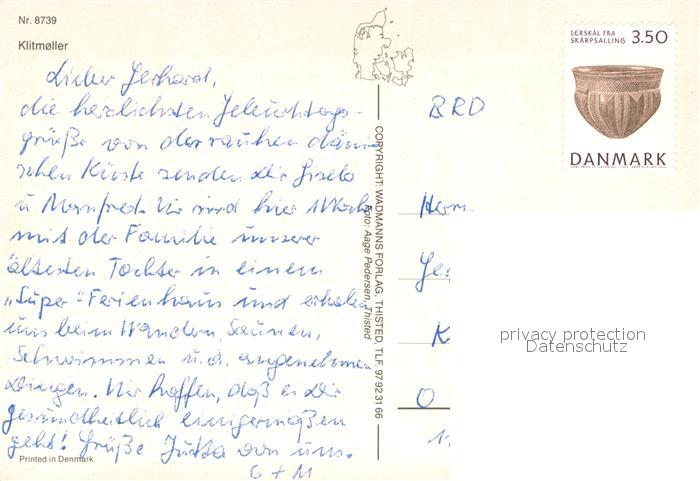 Nr. 8739
Klitmøller
Lieber Gerhard,
die herzlichsten Geburtstags-
grüße von der rauhen däni-
schen Küste senden Dir Gisela
u. Manfred. Wir sind hier 1 Woche
mit der Familie unserer
ältesten Tochter in einem
„Super"-Ferienhaus und erholen
uns beim Wandern, Saunen,
Schwimmen u.a. angenehmen
Dingen. Wir hoffen, daß es Dir
gesundheitlich einigermaßen
geht! Grüße Jutta von uns.
G + M
Printed in Denmark
COPYRIGHT: WADMANNS FORLAG, THISTED, TLF. 97 92 31 66
Foto: Aage Pedersen, Thisted
LERSKÅL FRA
SKARPSALLING
3.50
DANMARK
BRD
Herrn
Ge
K
O
privacy protection
Datenschutz